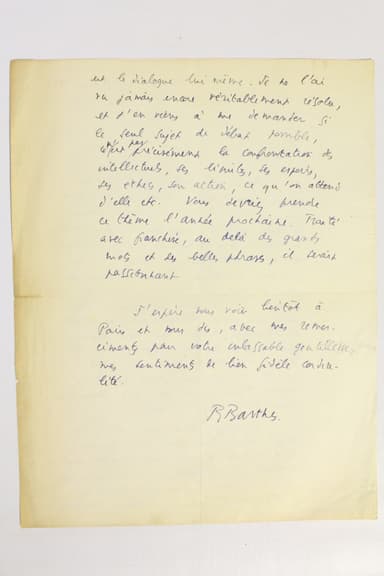 est le dialogue lui-même. Je ne l'ai
vu jamais encore véritablement résolu,
et j'en viens à me demander si
le seul sujet de débat possible,
n'est pas précisément la confrontation des
intellectuels, ses limites, ses espoirs,
ses échecs, son action, ce qu'on attend
d'elle etc. Vous devriez prendre
ce thème l'année prochaine. Traité
avec franchise, au delà des grands
mots et des belles phrases, il serait
passionnant.
J'espère vous voir bientôt à
Paris et vous dis, avec mes remer-
ciements pour votre inlassable gentillesse,
mes sentiments de bien fidèle cordia-
lité.
RBarthes.